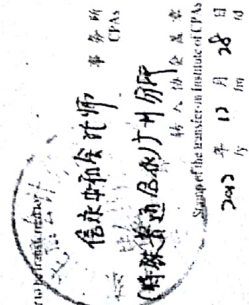 信永中和会计师
事务所
CPAs
(特殊普通合伙)广州分所
转入协会盖章
Stamp of the transfer-in Institute of CPAs
2012 年 12 月 28 日
/y /m /d